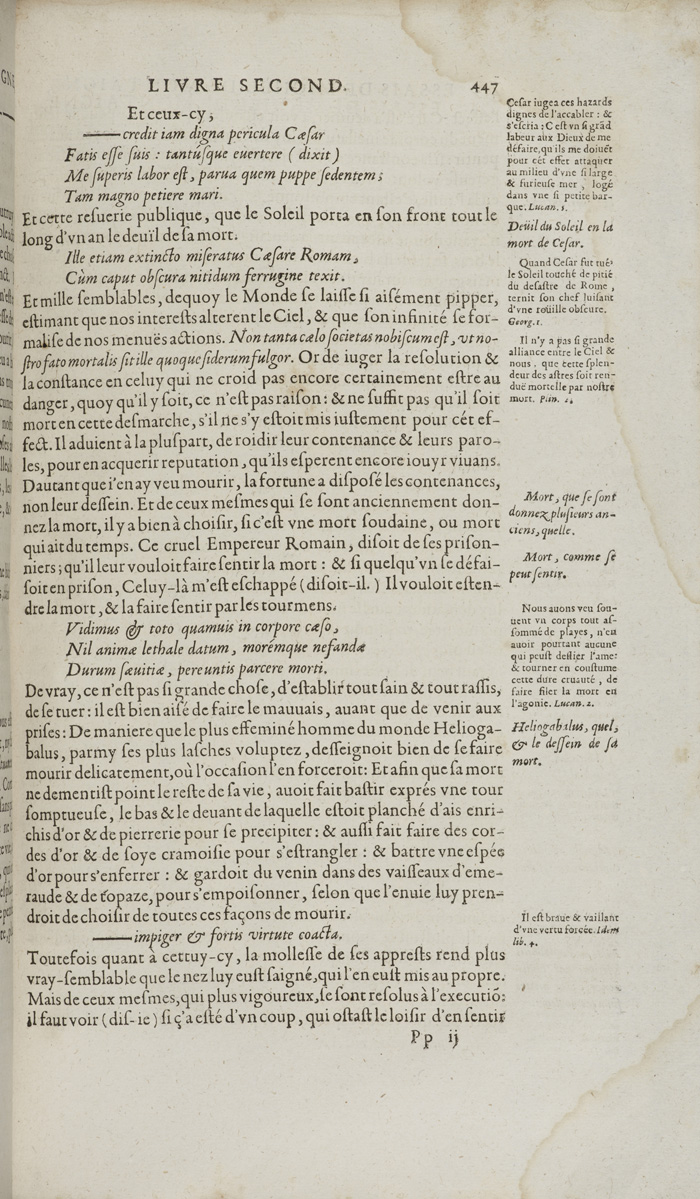 LIVRE SECOND. 447
Et ceux-cy,
—— credit iam digna pericula Cæsar
Fatis eſſe ſuis : tantúſque euertere (dixit)
Me ſuperis labor eſt, parua quem puppe ſedentem;
Tam magno petiere mari.
Et cette reſuerie publique, que le Soleil porta en ſon front tout le
long d'vn an le deuïl de ſa mort.
Ille etiam extincto miſeratus Cæſare Romam,
Cùm caput obſcura nitidum ferrugine texit.
Et mille ſemblables, dequoy le Monde ſe laiſſe ſi aiſément pipper,
eſtimant que nos intereſts alterent le Ciel, & que ſon infinité ſe for-
maliſe de nos menuës actions. Non tanta cælo ſocietas nobiſcum eſt, vt no-
ſtro fato mortalis ſit ille quoque ſiderum fulgor. Or de iuger la reſolution &
la conſtance en celuy qui ne croid pas encore certainement eſtre au
danger, quoy qu'il y ſoit, ce n'eſt pas raiſon : & ne ſuffit pas qu'il ſoit
mort en cette deſmarche, s'il ne s'y eſtoit mis iuſtement pour cét ef-
fect. Il aduient à la pluſpart, de roidir leur contenance & leurs paro-
les, pour en acquerir reputation, qu'ils eſperent encore iouyr viuans.
Dautant que i'en ay veu mourir, la fortune a diſpoſé les contenances,
non leur deſſein. Et de ceux meſmes qui ſe ſont anciennement don-
nez la mort, il y a bien à choiſir, ſi c'eſt vne mort ſoudaine, ou mort
qui ait du temps. Ce cruel Empereur Romain, diſoit de ſes priſon-
niers; qu'il leur vouloit faire ſentir la mort : & ſi quelqu'vn ſe défai-
ſoit en priſon, Celuy-là m'eſt eſchappé (diſoit-il.) Il vouloit eſten-
dre la mort, & la faire ſentir par les tourmens.
Vidimus & toto quamuis in corpore cæſo,
Nil animæ lethale datum, morémque nefandæ
Durum ſæuitiæ, pereuntis parcere morti.
De vray, ce n'eſt pas ſi grande choſe, d'eſtablir tout ſain & tout raſſis,
de ſe tuer : il eſt bien aiſé de faire le mauuais, auant que de venir aux
priſes : De maniere que le plus effeminé homme du monde Helioga-
balus, parmy ſes plus laſches voluptez, deſſeignoit bien de ſe faire
mourir delicatement, où l'occaſion l'en forceroit : Et afin que ſa mort
ne dementiſt point le reſte de ſa vie, auoit fait baſtir exprés vne tour
ſomptueuſe, le bas & le deuant de laquelle eſtoit planché d'ais enri-
chis d'or & de pierrerie pour ſe precipiter : & auſſi fait faire des cor-
des d'or & de ſoye cramoiſie pour s'eſtrangler : & battre vne eſpée
d'or pour s'enferrer : & gardoit du venin dans des vaiſſeaux d'eme-
raude & de topaze, pour s'empoiſonner, ſelon que l'enuie luy pren-
droit de choiſir de toutes ces façons de mourir.
—— impiger & fortis virtute coacta.
Toutefois quant à cettuy-cy, la molleſſe de ſes appreſts rend plus
vray-ſemblable que le nez luy euſt ſaigné, qui l'en euſt mis au propre.
Mais de ceux meſmes, qui plus vigoureux, ſe ſont reſolus à l'executiõ:
il faut voir (diſ-ie) ſi ç'a eſté d'vn coup, qui oſtaſt le loiſir d'en ſentir
Pp ij
Ceſar iugea ces hazards
dignes de l'accabler : &
s'eſcria : C'eſt vn ſi grãd
labeur aux Dieux de me
défaire, qu'ils me doiuẽt
pour cét effet attaquer
au milieu d'vne ſi large
& furieuſe mer, logé
dans vne ſi petite bar-
que. Lucan. 5.
Deüil du Soleil en la
mort de Ceſar.
Quand Ceſar fut tué,
le Soleil touché de pitié
du deſaſtre de Rome,
ternit ſon chef luiſant
d'vne roüille obſcure.
Georg. 1.
Il n'y a pas ſi grande
alliance entre le Ciel &
nous, que cette ſplen-
deur des aſtres ſoit ren-
duë mortelle par noſtre
mort. Plin. 2.
Mort, que ſe ſont
donnez pluſieurs an-
ciens, quelle.
Mort, comme ſe
peut ſentir.
Nous auons veu ſou-
uent vn corps tout aſ-
ſommé de playes, n'en
auoir pourtant aucune
qui peuſt deſlier l'ame:
& tourner en couſtume
cette dure cruauté, de
faire filer la mort en
l'agonie. Lucan. 2.
Heliogabalus, quel,
& le deſſein de ſa
mort.
Il eſt braue & vaillant
d'vne vertu forcée. Idem
lib. 4.